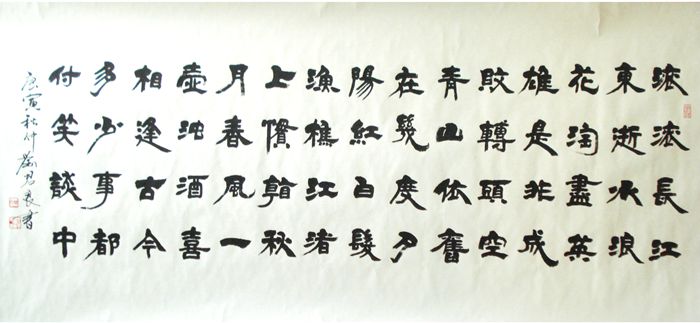 滚滚長江
東逝水浪
花淘盡英
雄是非成
敗轉頭空
青山依舊
在幾度夕
陽紅白髮
漁樵江渚
上慣看秋
月春風一
壺浊酒喜
相逢古今
多少事都
付笑談中
庚寅秋仲劉君良書